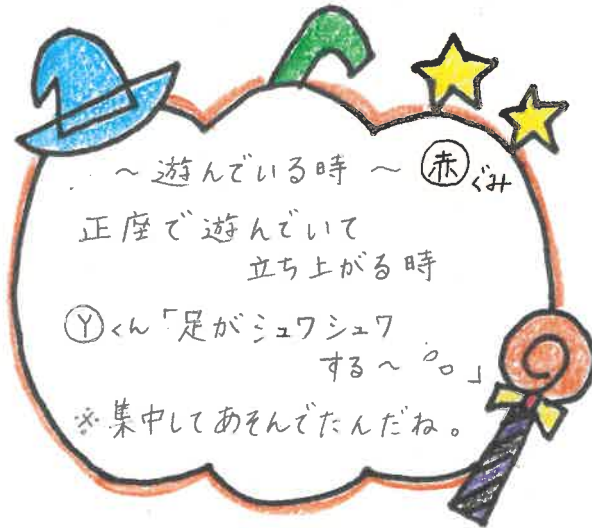 ～遊んでいる時～ 赤ぐみ
正座で遊んでいて
立ち上がる時
Ⓨくん「足がシュワシュワ
する～゜。」
※集中してあそんでたんだね。